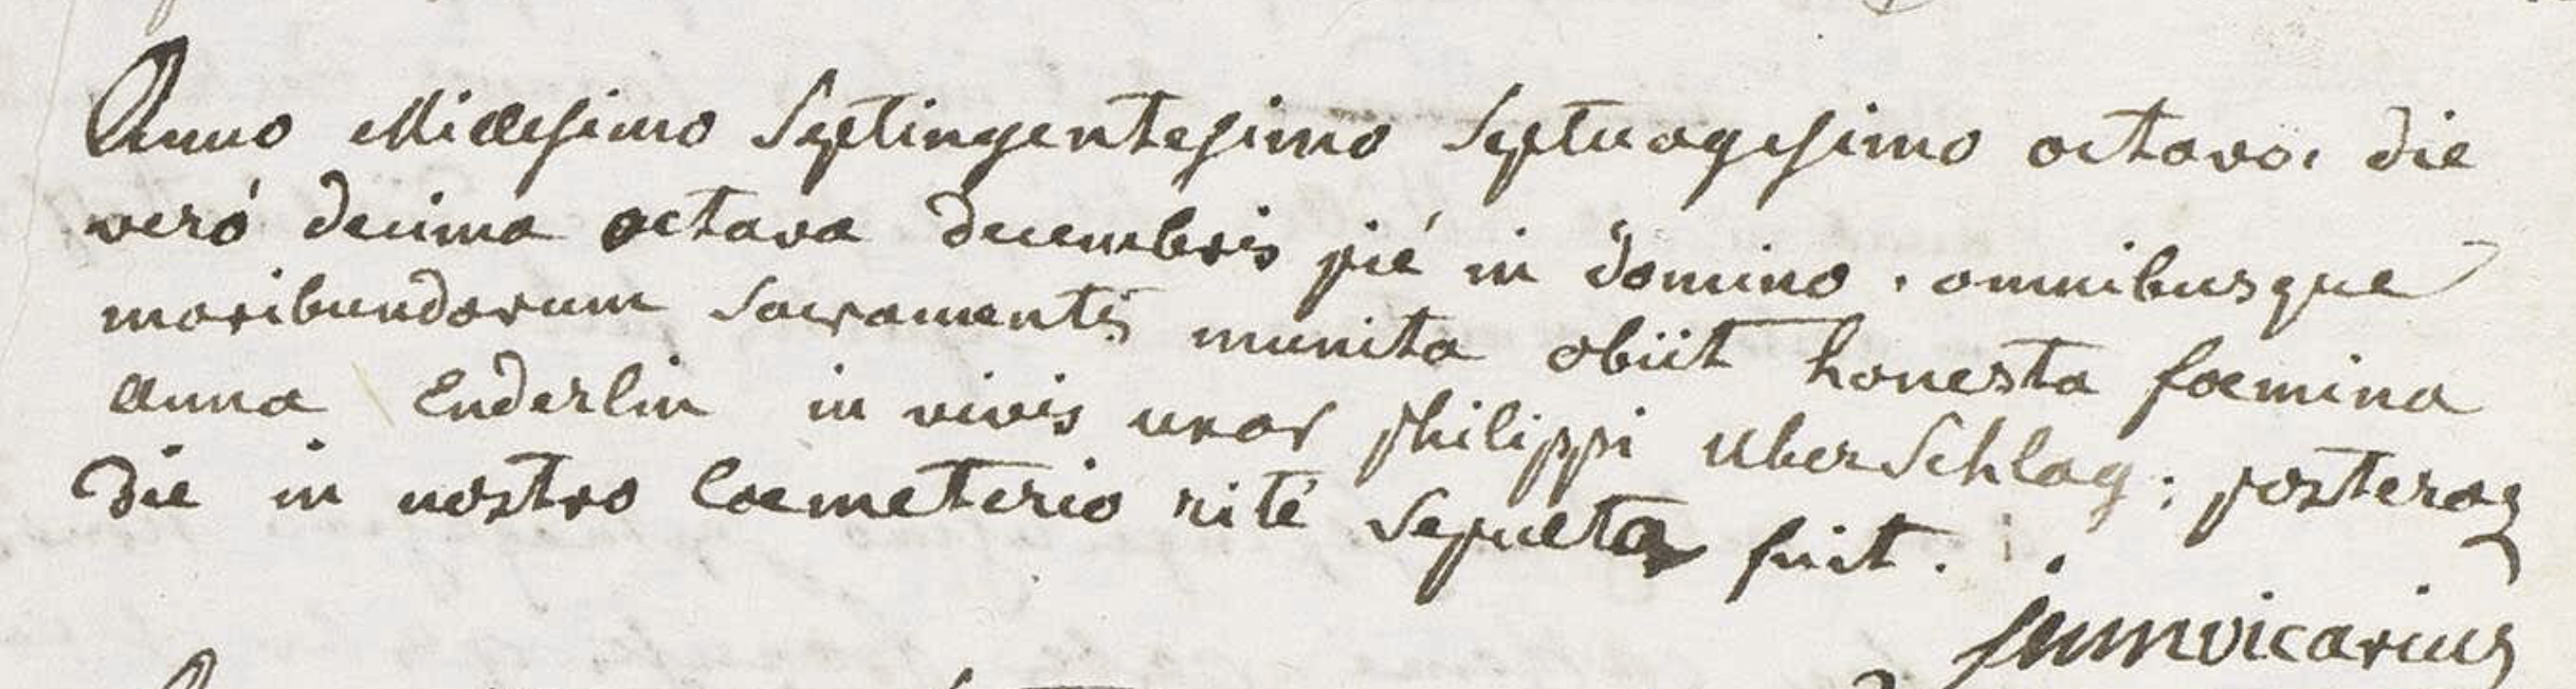 Anno Millesimo Septingentesimo Septuagesimo octavo, die
veró decima octava decembris pié in Domino, omnibusque
moribundorum Sacramentis munita obiit honesta foemina
anna Enderlin in vivis uxor philippi UberSchlag; posteraq
die in nostro Coemeterio rité Sepulta fuit.